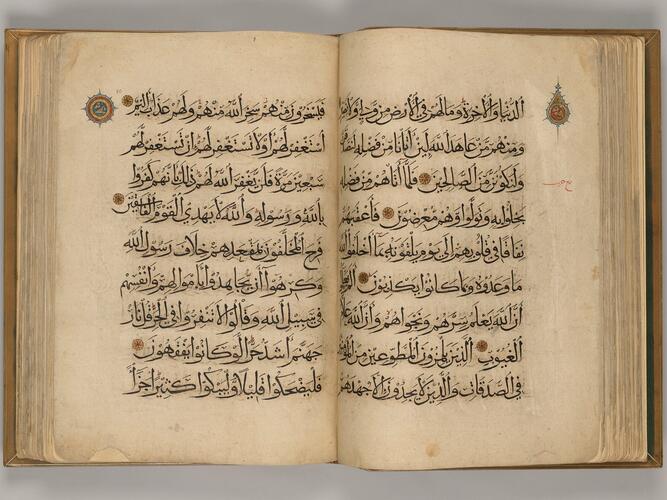 الدنيا والآخرة وما لهم في الأرض من ولي ولا نصير
ومنهم من عاهد الله لئن آتانا من فضله
ولنكونن من الصالحين فلما آتاهم من فضله
بخلوا به وتولوا وهم معرضون فأعقبهم
نفاقا في قلوبهم إلى يوم يلقونه بما أخلفوا الله
ما وعدوه وبما كانوا يكذبون
أن الله يعلم سرهم ونجواهم وأن الله علام
الغيوب الذين يلمزون المطوعين من
في الصدقات والذين لا يجدون إلا جهدهم
فيسخرون منهم سخر الله منهم ولهم عذاب أليم
استغفر لهم أو لا تستغفر لهم إن تستغفر لهم
سبعين مرة فلن يغفر الله لهم ذلك بأنهم كفروا
بالله ورسوله والله لا يهدي القوم الفاسقين
فرح المخلفون بمقعدهم خلاف رسول الله
وكرهوا أن يجاهدوا بأموالهم وأنفسهم
في سبيل الله وقالوا لا تنفروا في الحر قل نار
جهنم أشد حرا لو كانوا يفقهون
فليضحكوا قليلا وليبكوا كثيرا جزاء